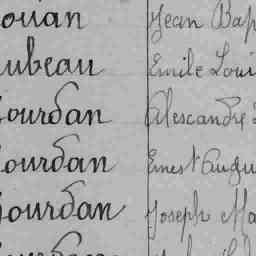 ouan Jean Bap
ubeau Emile Loui
ourdan Alexandre
ourdan Ernest Augu
Jourdan Joseph Ma